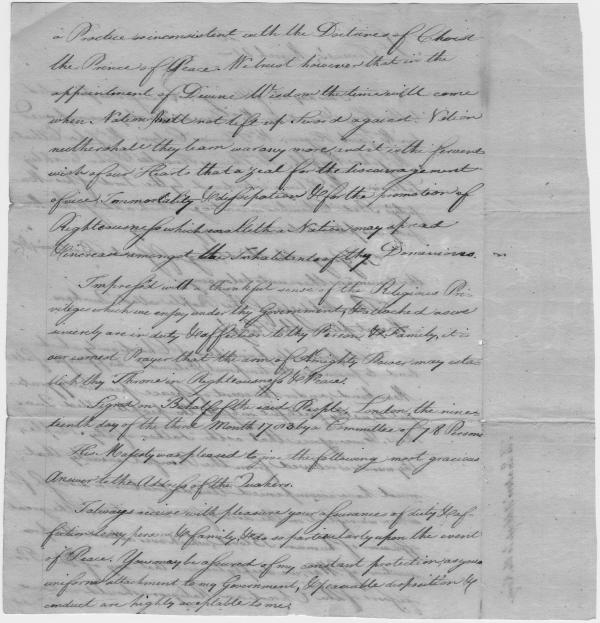 a Practice so inconsistent with the Doctrines of Christ
the Prince of Peace. We trust however that in the
appointment of Divine Wisdom the time will come
when Nation shall not lift up Sword against Nation
neither shall they learn war any more and it is the fervent
wish of our Hearts that a zeal for the discouragement
of vice, Immorality & dissipation & for the promotion of
Righteousness which exalteth a Nation may spread
& increase amongst the Inhabitants of thy Dominions.
Impress'd with thankful sense of the Religious Pri-
vileges which we enjoy under thy Government, & attached as we
sincerely are in duty & affection to thy Person & Family, it is
our earnest Prayer that the arm of Almighty Power may esta-
blish thy Throne in Righteousness & Peace.
Signed in Behalf of the said People, London, the nine-
teenth day of the third Month 1783 by a Committee of 78 Persons
His Majesty was pleased to give the following most gracious
Answer to the Address of the Quakers.
I always receive with pleasure your assurances of duty & af-
fection to my person & family, & do so particularly upon the event
of Peace. You may be assured of my constant protection, as your
uniform attachment to my Government, & peaceable disposition &
conduct are highly acceptable to me.